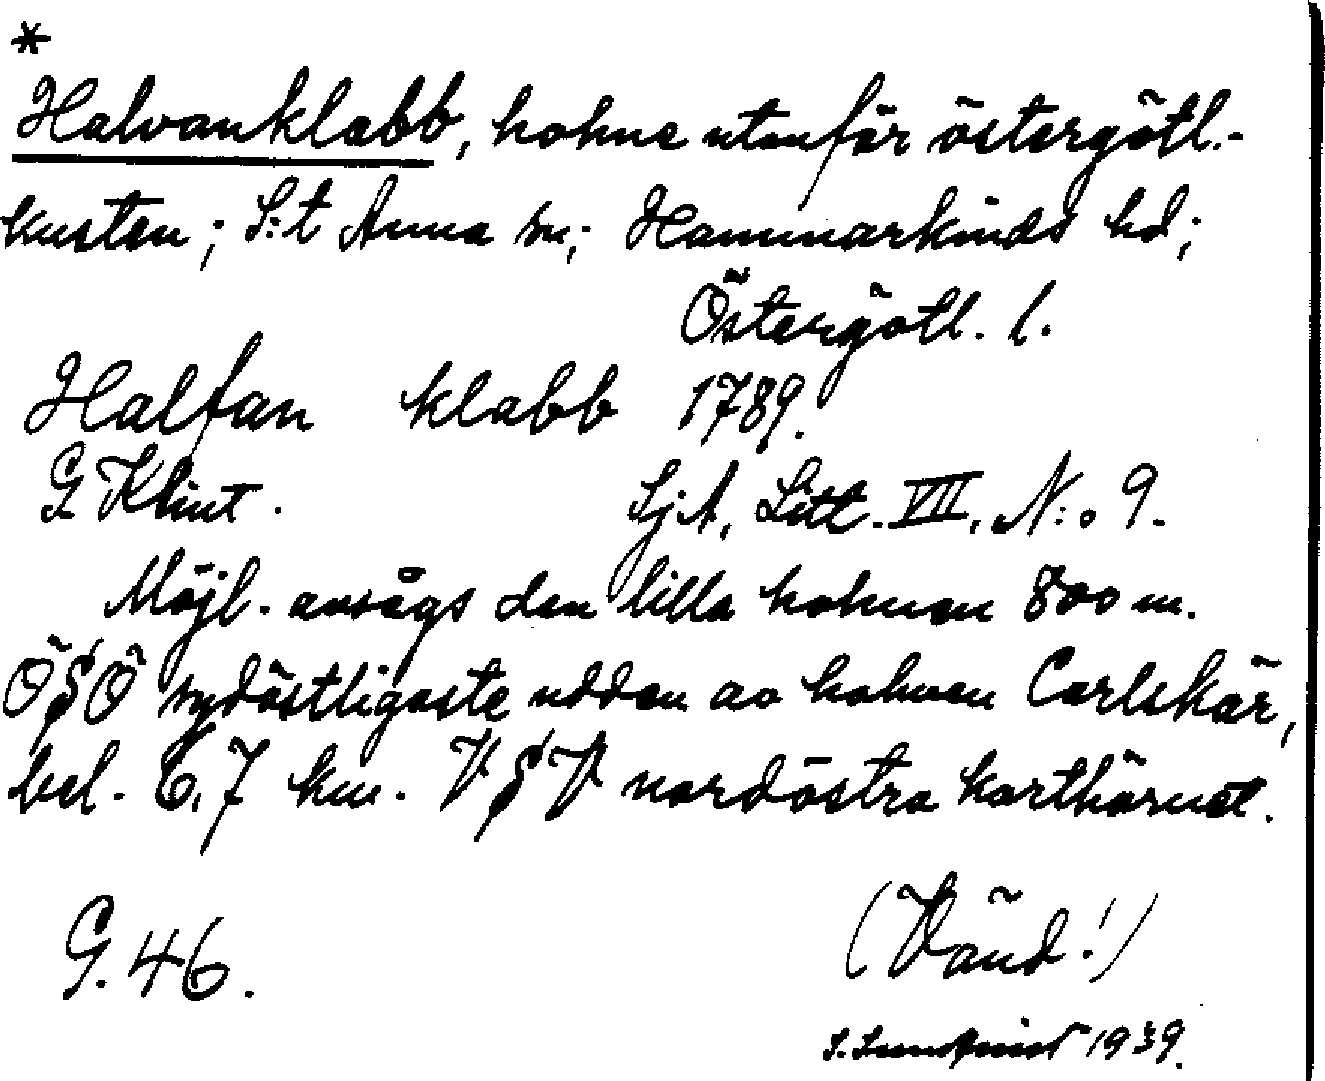 *
Halvanklabb, holme utanför östergötl.-
kusten; S:t Anna sn; Hammarkinds hd;
Östergötl. l.
Halfan klabb 1789.
G Klint. SjA, Litt. VII, N:o 9.
Möjl. avsågs den lilla holmen 800 m.
ÖSÖ sydöstligaste udden av holmen Carlskär,
bel. 6,7 km. VSV nordöstra karthörnet.
G. 46. (Vänd!)
S. Sundqvist 1939.